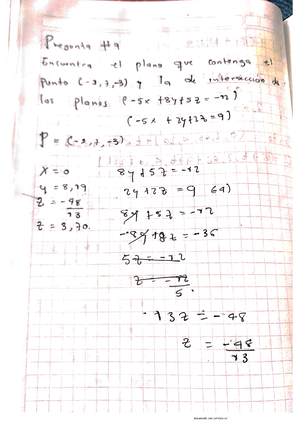 Pregunta #9
Encuentra el plano que contenga el
punto (-2,7,-3) y la de intersección de
los planos (-5x + 8y + 5z = -12)
(-5x + 2y + 2z = 9)
P = (-2,7,-3)
x = 0
y = 8,19
z = -48/13
z = 3,70
8y + 5z = -12
2y + 2z = 9
8y + 5z = -12
-8y + 8z = -36
5z = -12
z = -12/5
13z = -48
z = -48/13